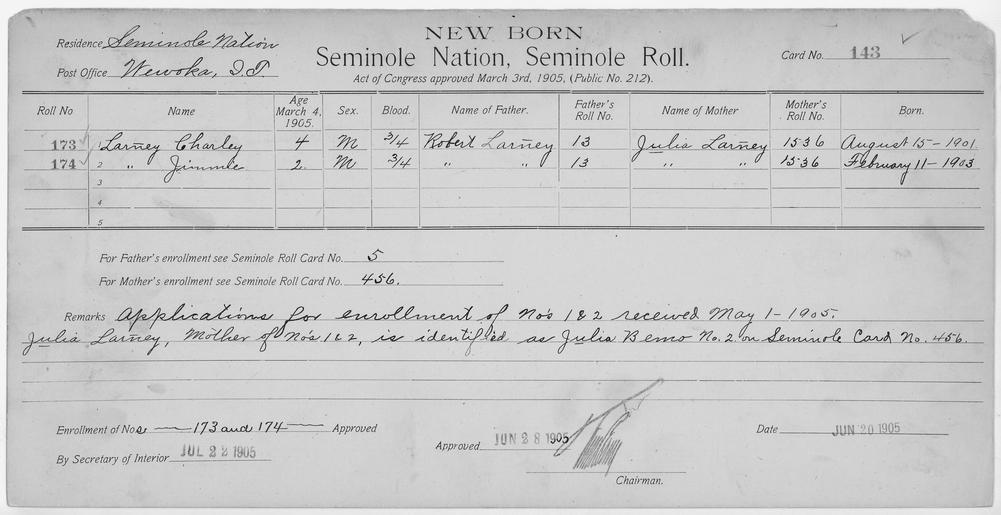 NEW BORN
Seminole Nation, Seminole Roll.
Act of Congress approved March 3rd, 1905, (Public No. 212).
Residence Seminole Nation
Post Office Wewoka, I.T.
Card No. 143
Roll No Name Age March 4, 1905. Sex. Blood. Name of Father. Father's Roll No. Name of Mother Mother's Roll No. Born.
173 1 Larney Charley 4 M 3/4 Robert Larney 13 Julia Larney 1536 August 15 - 1901
174 2 " Jimmie 2 M 3/4 " " 13 " " 1536 February 11 - 1903
3
4
5
For Father's enrollment see Seminole Roll Card No. 5
For Mother's enrollment see Seminole Roll Card No. 456.
Remarks Applications for enrollment of Nos 1 & 2 received May 1 - 1905.
Julia Larney, Mother of Nos 1 & 2, is identified as Julia Bemo No. 2 on Seminole Card No. 456.
Enrollment of Nos 173 and 174 Approved
By Secretary of Interior JUL 22 1905
Approved JUN 28 1905
Chairman.
Date JUN 20 1905